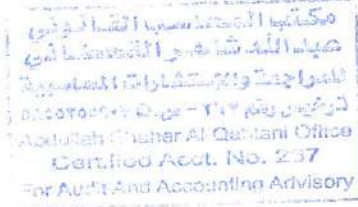 مكتب المحاسب القانوني
عبدالله شاهر القحطاني
للمراجعة والإستشارات المحاسبية
ترخيص رقم
Abdullah Shaher Al Qahtani Office
Certified Acct. No. 237
For Audit And Accounting Advisory